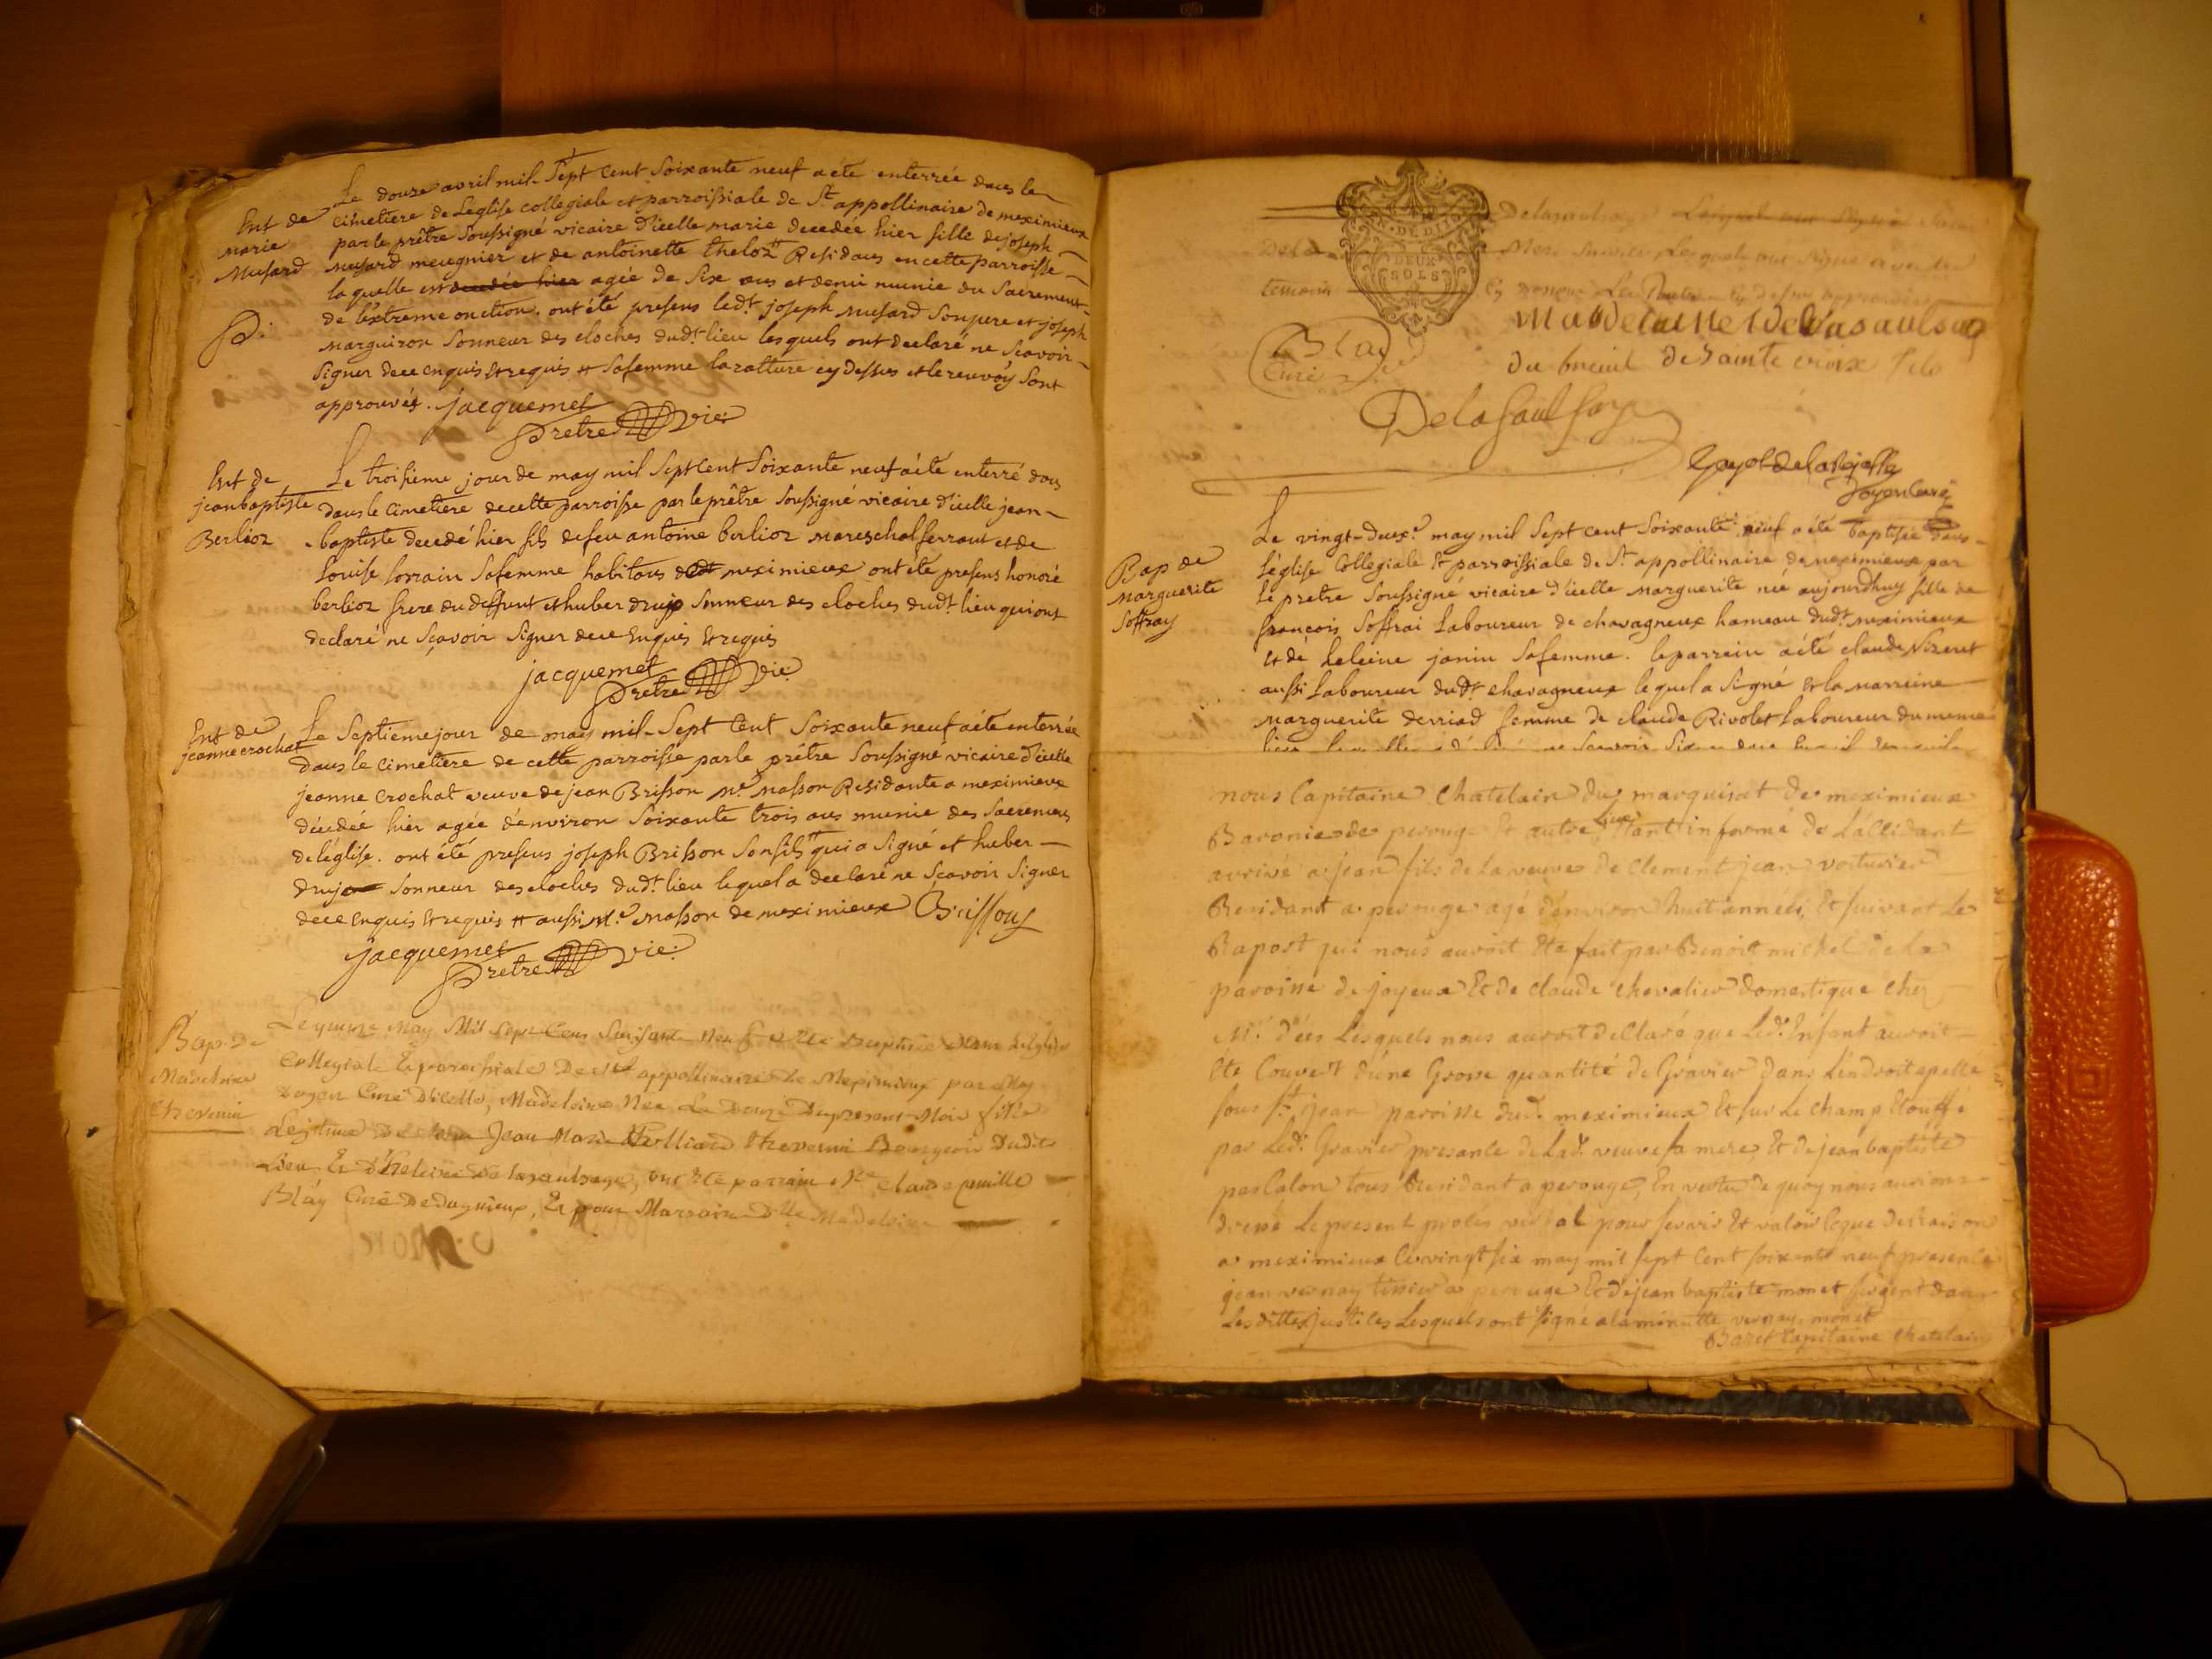 Le douze avril mil Sept Cent Soixante neuf a été enterrée dans le
Ent de
marie
Musard
cimetiere de Leglise collegiale et parroissiale de St appollinaire de meximieux
par le prêtre Soussigné vicaire d'icelle marie decedée hier fille de joseph
musard meugnier et de antoinette theloz # Residans en cette parroisse
laquelle est decedée hier agée de Six ans et demi munie du Sacrement
de l'extreme onction. ont été presens ledt joseph musard Son pere et joseph
marguiron Sonneur des cloches dudt lieu lesquels ont declaré ne Scavoir
Signer dece enquis et requis # Sa femme la rature cy dessus et le renvoy Sont
approuvés. jacquemet
Pretre vic:
Ent de
jean baptiste
Berlioz
Le troisieme jour de may mil Sept Cent Soixante neuf a été enterré dans
dans le Cimetiere de cette parroisse par le prêtre Soussigné vicaire d'icelle jean
baptiste decedé hier fils de feu antoine berlioz mareschal ferrant et de
Louise Lorrain Sa femme habitans meximieux ont été presens honoré
berlioz frere du deffunt et huber drujo Sonneur des cloches dudt lieu qui ont
declaré ne Sçavoir Signer dece Enquis Et requis
jacquemet
Prêtre Vic:
Ent de
jeanne crochat
Le Septieme jour de may mil Sept Cent Soixante neuf a été enterrée
dans le cimetiere de cette parroisse par le prêtre Soussigné vicaire d'icelle
jeanne Crochat veuve de jean Brisson Me Masson Residante a meximieux
décedée hier agée d'environ Soixante trois ans munie des Sacremens
de léglise. ont été presens joseph Brisson Son fils # qui a Signé et huber
drujo Sonneur des cloches dudt lieu lequel a declaré ne Sçavoir Signer
dece enquis Et requis # aussi Me masson de meximieux Brissony
jacquemet
Prêtre vic:
Bap. De
Madeleine
Thevenin
Le quinze May Mil Sept Cens Soixante Neuf a été Baptisée Dans Leglise
Collegiale Et paroissiale De St appollinaire De Meximieux par Moy
Doyen Curé D'icelle, Madeleine Née Le Douze Du present Mois fille
Legitime De Jean Marie Thevenin Bourgeois Dudit
Lieu Et D'Heleine De lasaulsaye, ont été parrain Claude
Bláy Curé De Dagnieux, Et pour Marraine Dlle Madeleine
DE DIJ
DEUX
SOLS
Delasaulsaye
temoin
Blay
Curé
Madelaine Delasaulsay
du breuil de Sainte croix
Delasaulsaye
Doyen Curé
Bap de
marguerite
Soffray
Le vingt-Deuxe may mil Sept cent Soixante neuf a été baptisée dans
l'église Collegiale Et parroissiale de St appollinaire de meximieux par
Le prêtre Soussigné vicaire d'icelle marguerite née aujourd'huy fille de
françois Soffrai Laboureur de chavagneux hameau dudt meximieux
Et de heleine janin Sa femme. le parrein a été claude Nizeret
aussi Laboureur dudt chavagneux lequel a Signé Et la marreine
marguerite derriad femme de claude Rivolet Laboureur du meme
nous Capitaine Chatelain du marquisat de meximieux
Baronie de perouge Et autre Lieux Etant informé de Laccidant
arrivé a jean fils de la veuve de Clement jean voiturier
Residant a perouge agé d'environ huit années, Et suivant Le
Raport qui nous auroit Eté fait par Benoit michel de La
paroisse de joyeux Et de claude chevalier domestique chez
Mr. d'ées Lesquels nous auroit declaré que Ledt Enfant auroit
Eté Couvert d'une Grosse quantité de Gravier dans L'endroit apellé
sous St. jean paroisse dudt meximieux Et sur Le champ Etouffé
par Ledt Gravier presance de Ladt veuve sa mere Et de jean baptiste
pas Calon tous Residant a perouge, En vertu de quoy nous avions
dressé Le present procés verbal pour servir Et valoir Ceque de raison
a meximieux Ce vingt six may mil sept Cent soixante neuf presence
jean vernay tissier a perouge Et de jean baptiste monet sergent dans
Les dittes justices Lesquels ont signé a la minutte vernay. monet
Baret Capitaine Chatelain